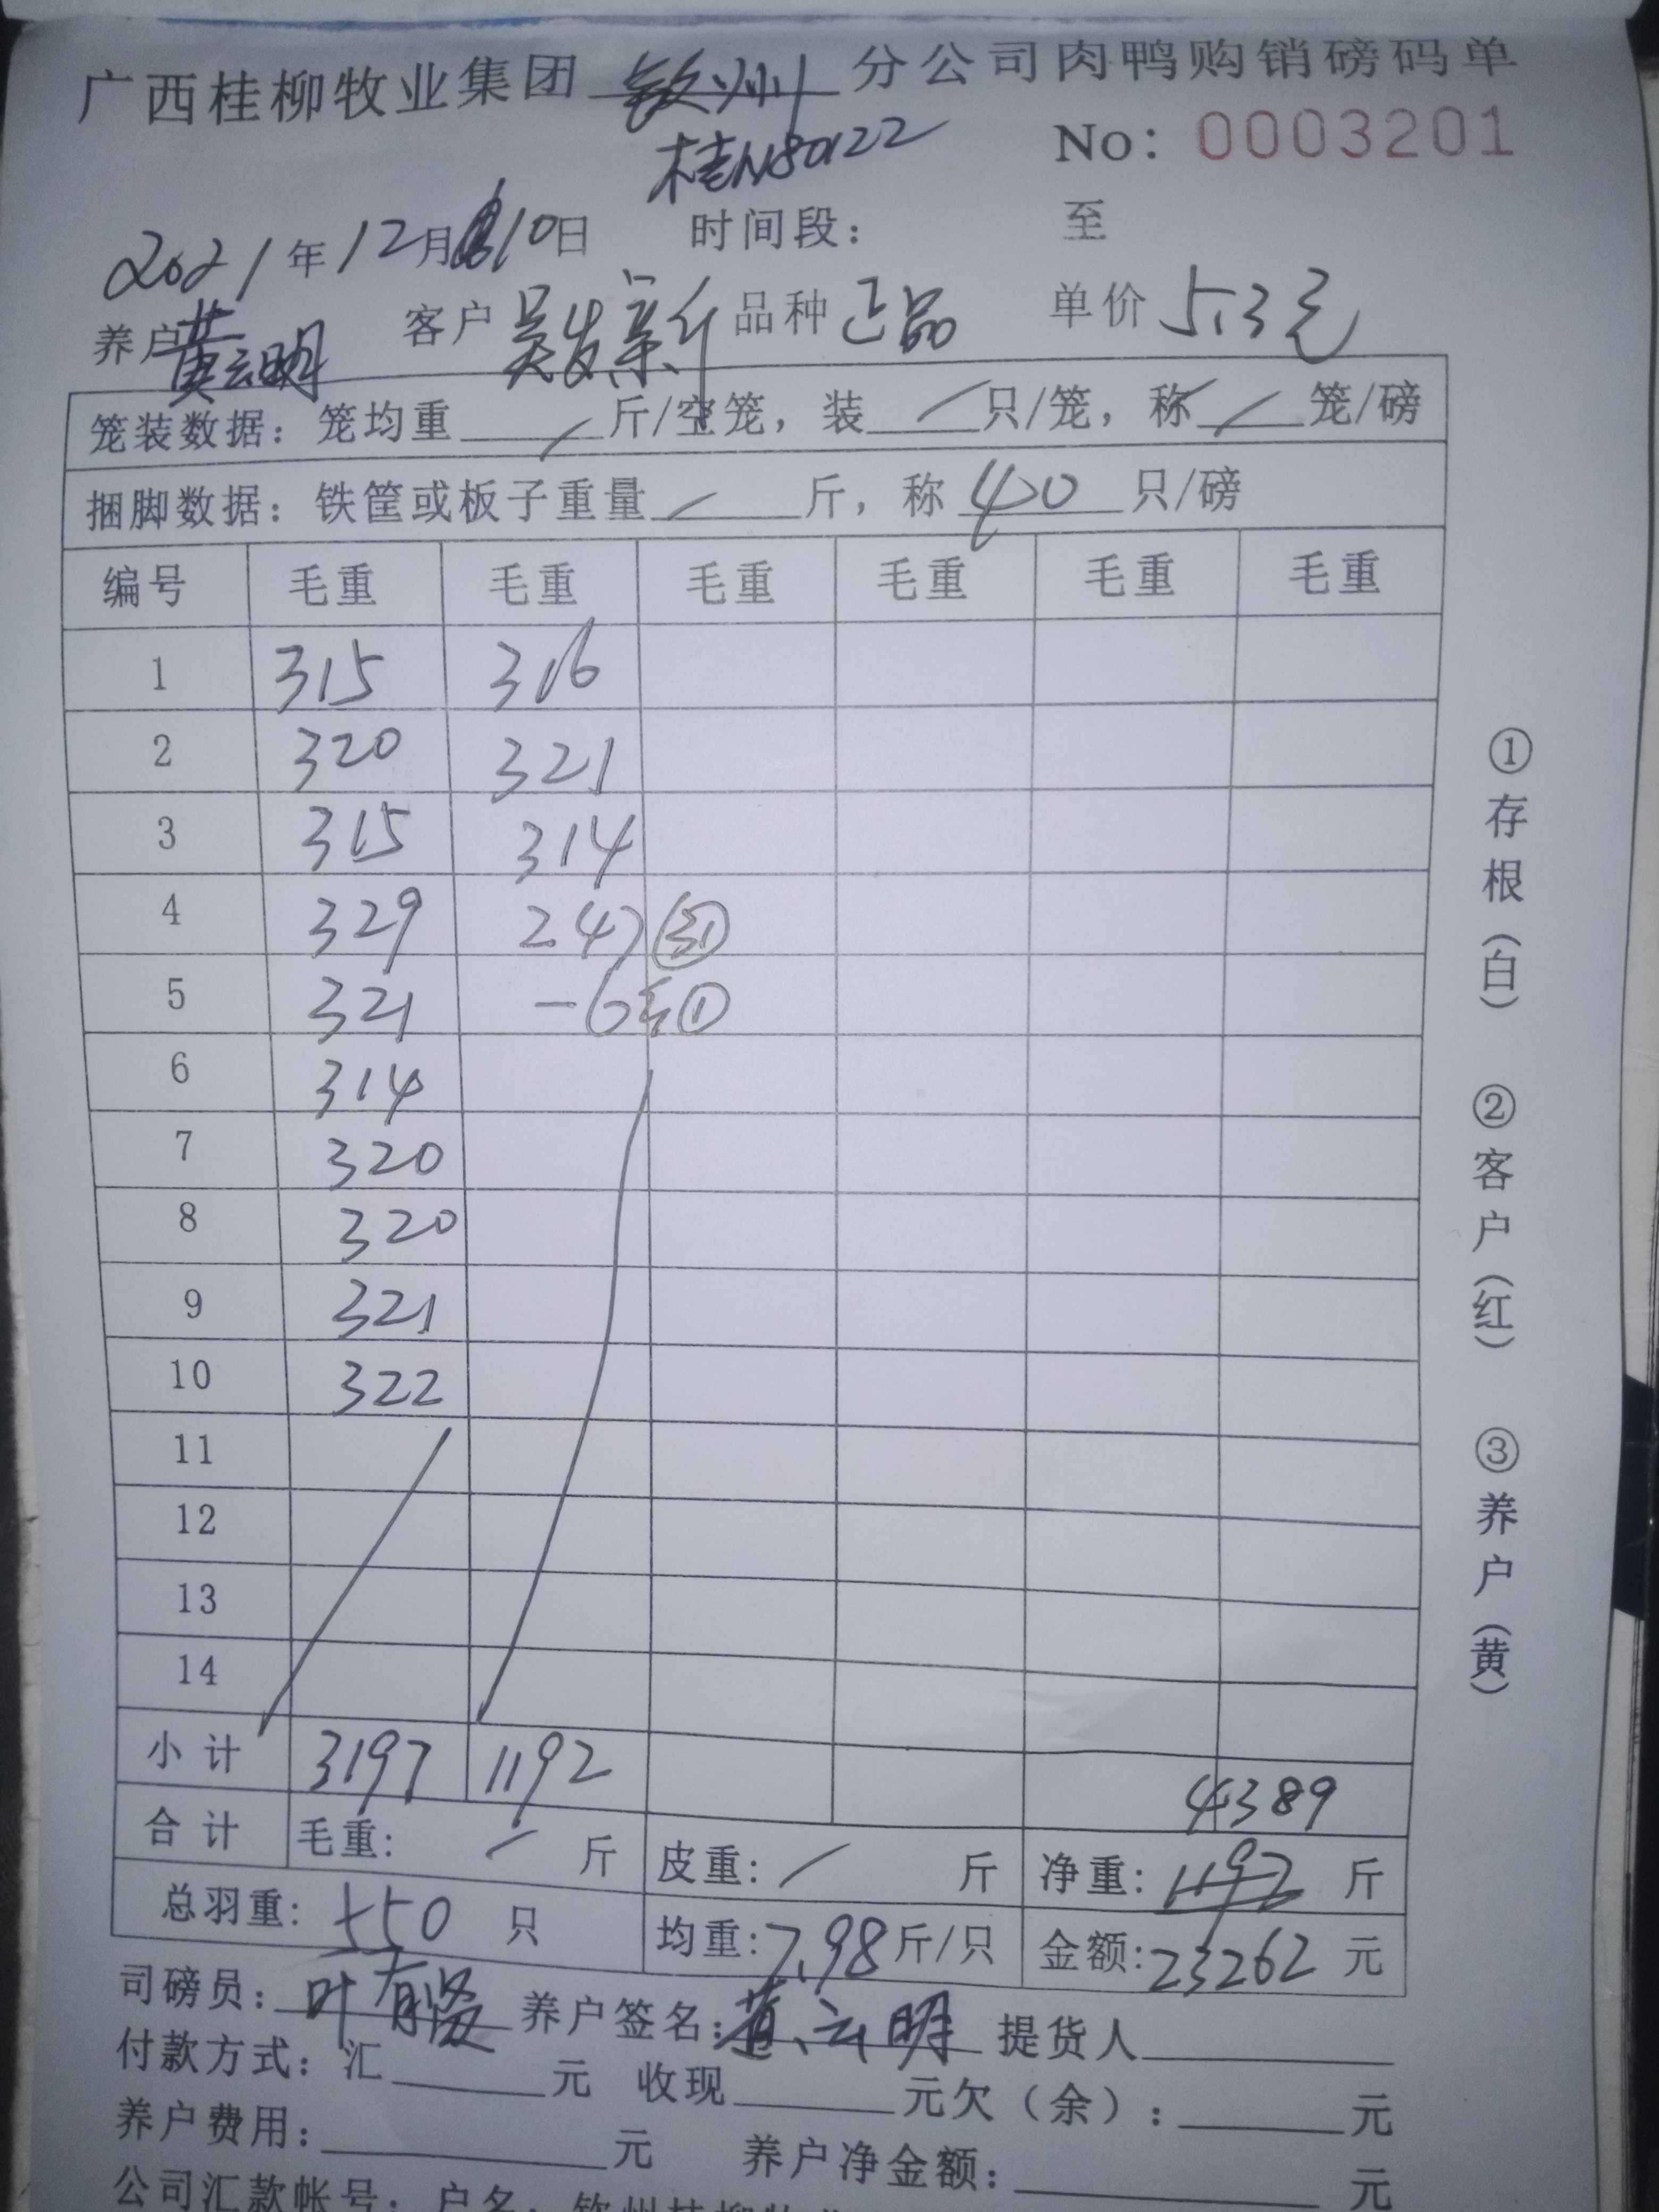 广西桂柳牧业集团 钦州 分公司肉鸭购销磅码单
桂N80122 No: 0003201
2021年12月10日 时间段: 至
养户黄云明 客户吴发新 品种正品 单价5.3元
笼装数据: 笼均重 / 斤/空笼, 装 / 只/笼, 称 / 笼/磅
捆脚数据: 铁筐或板子重量 / 斤, 称 40 只/磅
编号 毛重 毛重 毛重 毛重 毛重 毛重
1 315 316
2 320 321
3 315 314
4 329 247 ㉛
5 321 -6 ①
6 314
7 320
8 320
9 321
10 322
11
12
13
14
小计 3197 1192 4389
合计 毛重: / 斤 皮重: / 斤 净重: 1192 斤
总羽重: 550 只 均重: 7.98 斤/只 金额: 23262 元
司磅员: 叶有 养户签名: 黄云明 提货人
付款方式: 汇 元 收现 元欠(余): 元
养户费用: 元 养户净金额: 元
公司汇款帐号: 户名: 钦州桂柳牧业
①存根(白) ②客户(红) ③养户(黄)